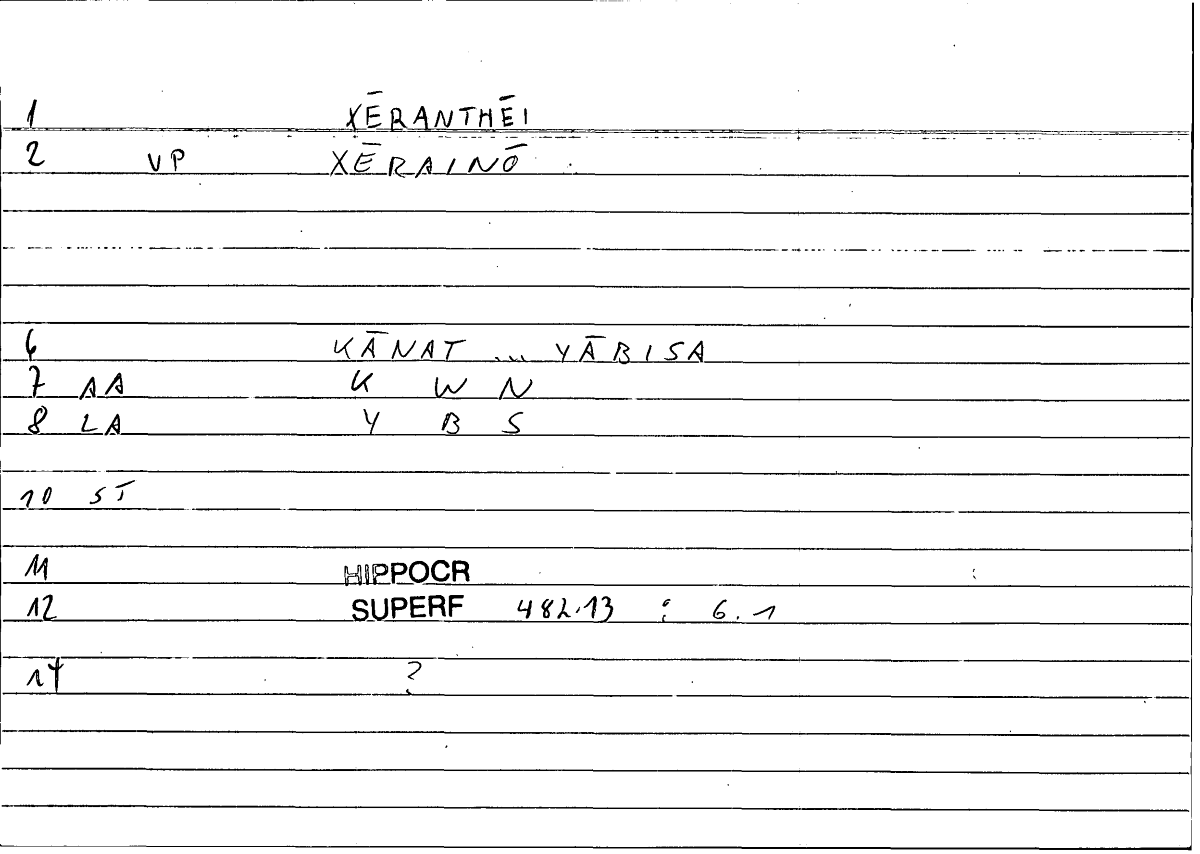 1 XĒRANTHĒI
2 VP XĒRAINŌ
6 KĀNAT ... YĀBISA
7 AA K W N
8 LA Y B S
10 ST
11 HIPPOCR
12 SUPERF 482.13 : 6.1
14 ?